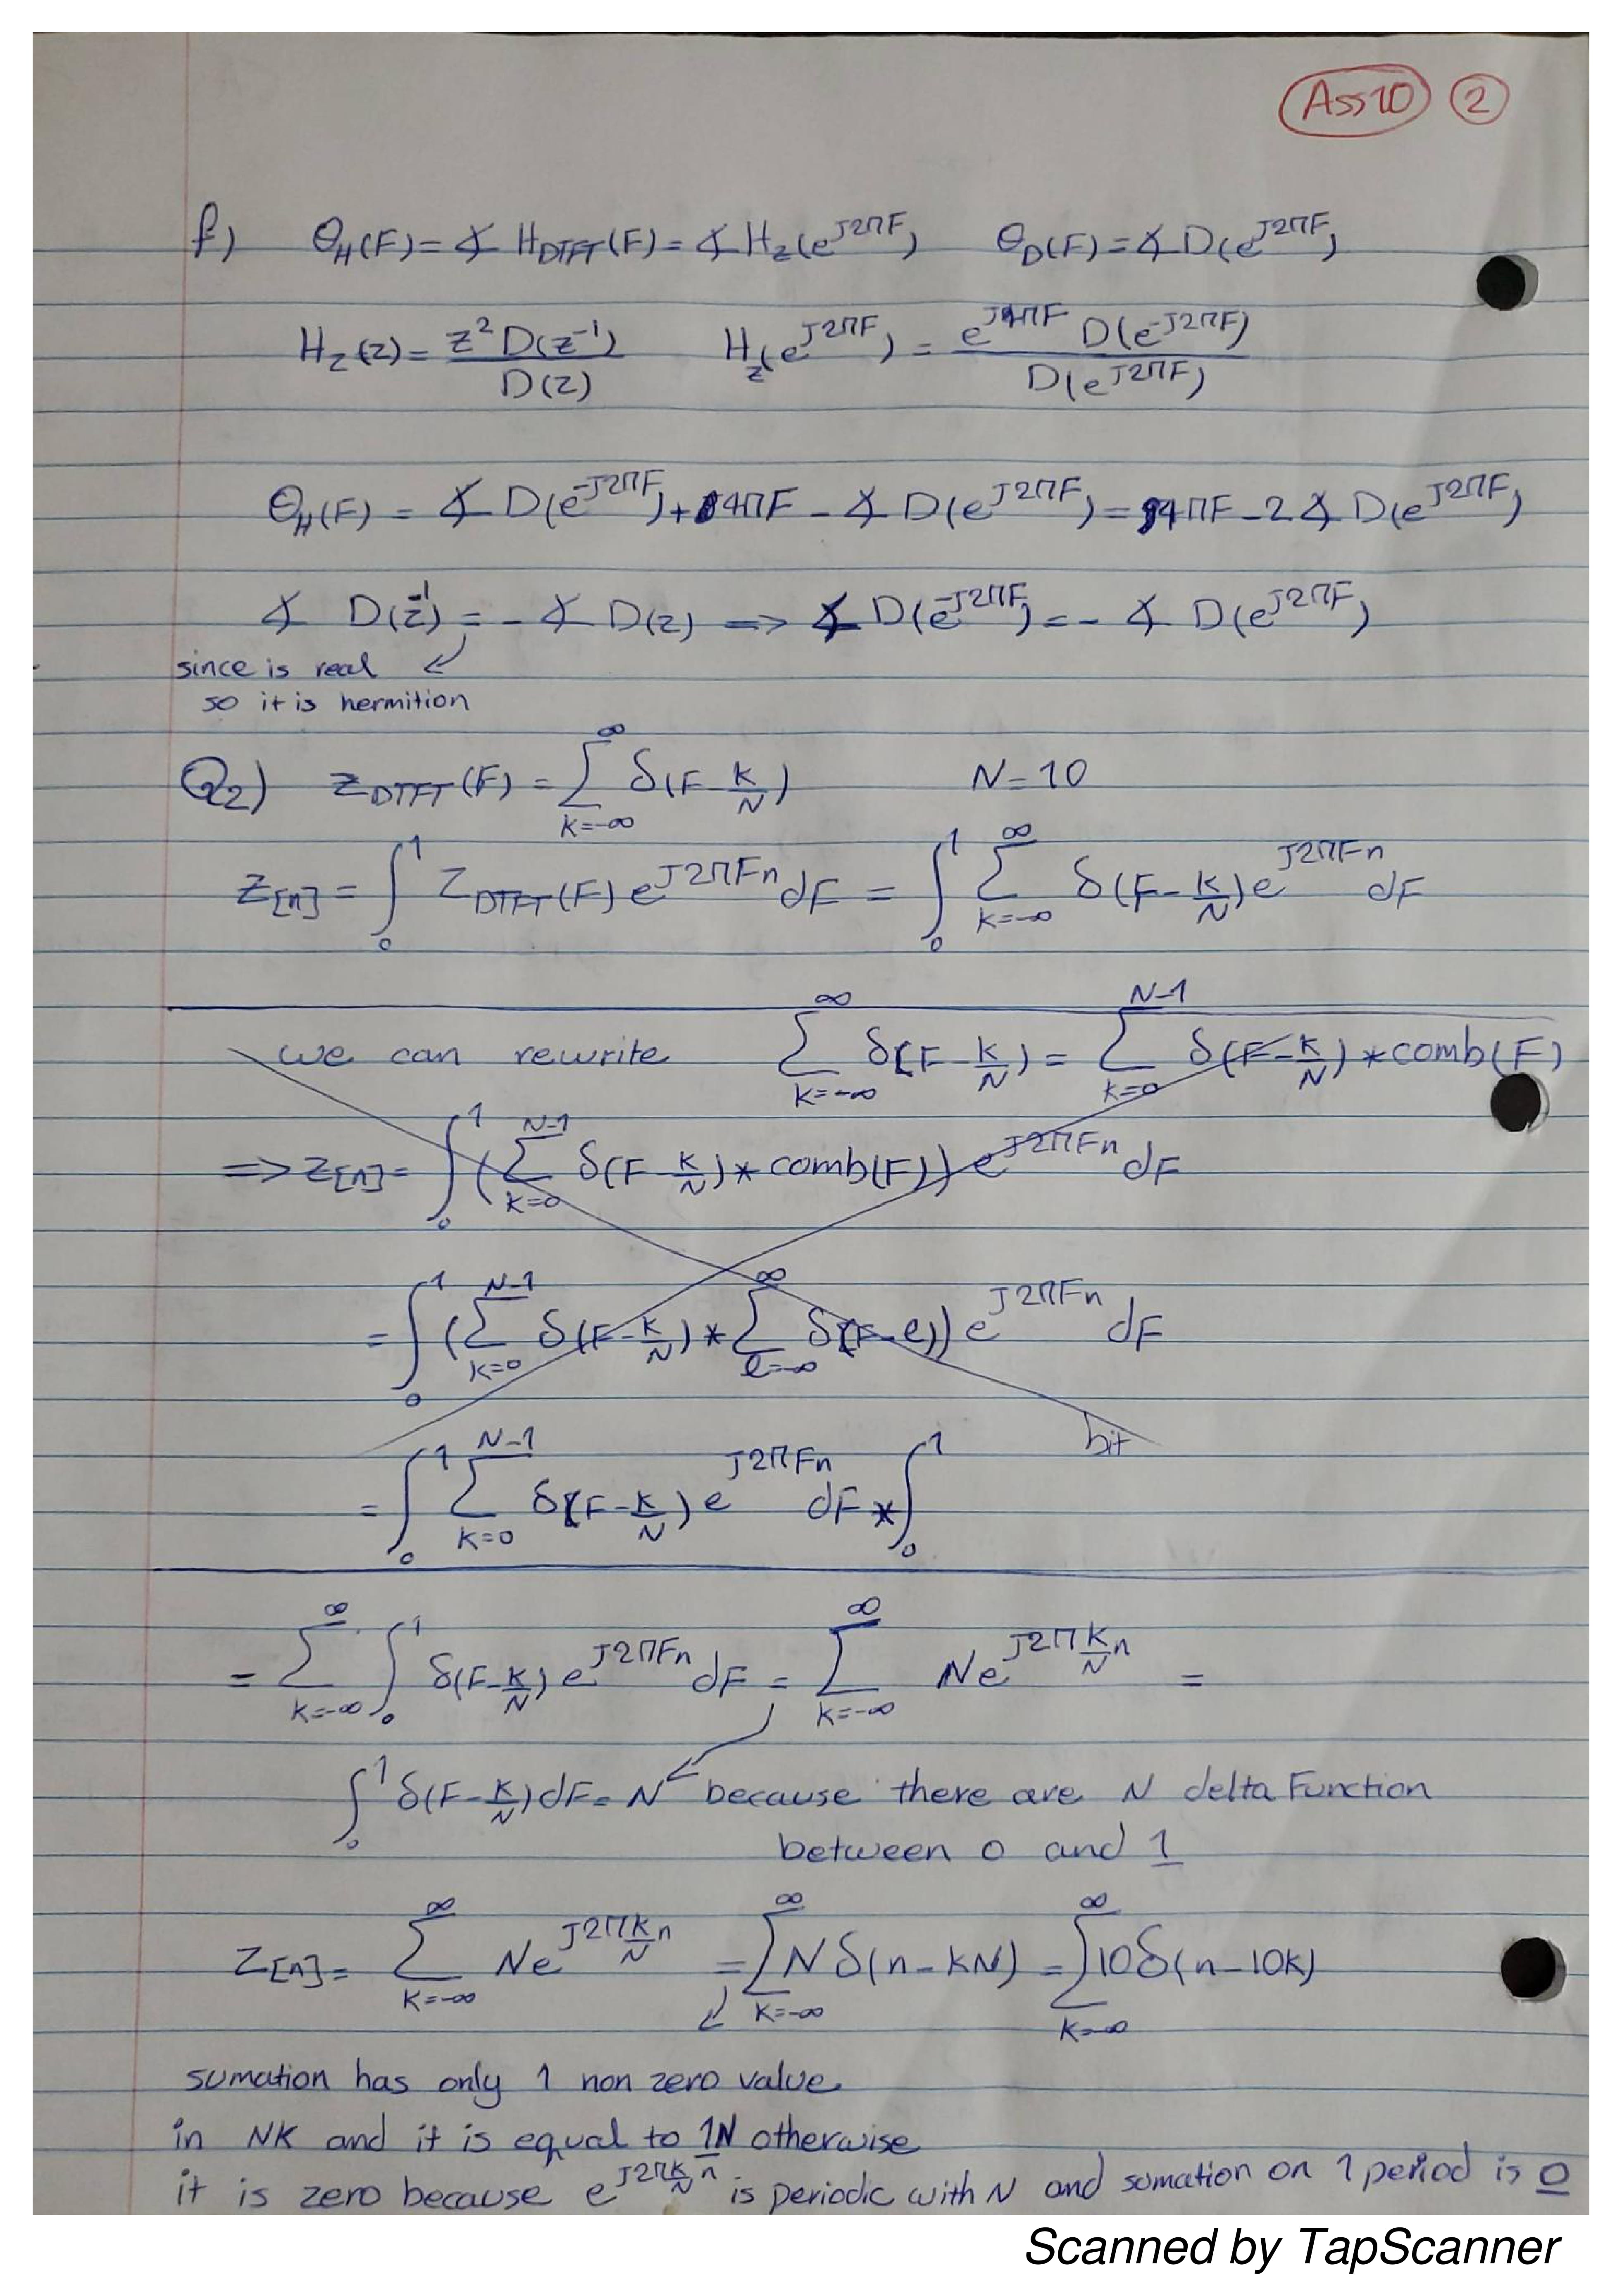 Ass10 2
f) θ_H(F) = ∡ H_DTFT(F) = ∡ H_z(e^{J2πF}) θ_D(F) = ∡ D(e^{J2πF})
H_z(z) = \frac{z^2 D(z^{-1})}{D(z)} H_z(e^{J2πF}) = \frac{e^{J4πF} D(e^{-J2πF})}{D(e^{J2πF})}
θ_H(F) = ∡ D(e^{-J2πF}) + 4πF - ∡ D(e^{J2πF}) = 4πF - 2∡ D(e^{J2πF})
∡ D(z^{-1}) = - ∡ D(z) => ∡ D(e^{-J2πF}) = - ∡ D(e^{J2πF})
since is real
so it is hermition
Q2) Z_DTFT(F) = \sum_{k=-∞}^{∞} δ(F - \frac{k}{N}) N=10
Z[n] = \int_0^1 Z_DTFT(F) e^{J2πFn} dF = \int_0^1 \sum_{k=-∞}^{∞} δ(F - \frac{k}{N}) e^{J2πFn} dF
we can rewrite \sum_{k=-∞}^{∞} δ(F - \frac{k}{N}) = \sum_{k=0}^{N-1} δ(F - \frac{k}{N}) * comb(F)
=> Z[n] = \int_0^1 (\sum_{k=0}^{N-1} δ(F - \frac{k}{N}) * comb(F)) e^{J2πFn} dF
= \int_0^1 (\sum_{k=0}^{N-1} δ(F - \frac{k}{N}) * \sum_{l=-∞}^{∞} δ(F - l)) e^{J2πFn} dF
bit
= \int_0^1 \sum_{k=0}^{N-1} δ(F - \frac{k}{N}) e^{J2πFn} dF * \int_0^1
= \sum_{k=-∞}^{∞} \int_0^1 δ(F - \frac{k}{N}) e^{J2πFn} dF = \sum_{k=-∞}^{∞} N e^{J2π\frac{k}{N}n} =
\int_0^1 δ(F - \frac{k}{N}) dF = N because there are N delta Function
between 0 and 1
Z[n] = \sum_{k=-∞}^{∞} N e^{J2π\frac{k}{N}n} = \sum_{k=-∞}^{∞} N δ(n - kN) = \sum_{k=-∞}^{∞} 10 δ(n - 10k)
sumation has only 1 non zero value
in NK and it is equal to 1N otherwise
it is zero because e^{J2π\frac{k}{N}n} is periodic with N and sumation on 1 period is 0
Scanned by TapScanner